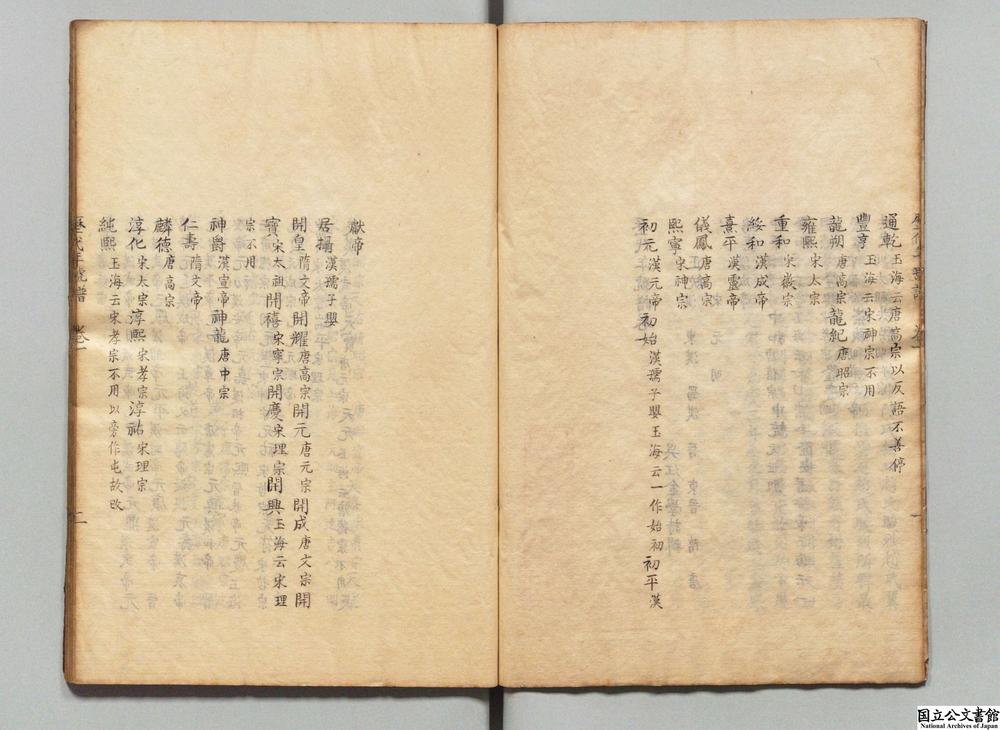 通乾玉海云唐高宗以反語不善停
豐亨玉海云宋神宗不用
龍朔唐高宗龍紀唐昭宗
雍熙宋太宗
重和宋徽宗
綏和漢成帝
熹平漢靈帝
儀鳳唐高宗
熙寧宋神宗
初元漢元帝初始漢孺子嬰玉海云一作始初初平漢
獻帝
居攝漢孺子嬰
開皇隋文帝開耀唐高宗開元唐元宗開成唐文宗開
寳宋太祖開禧宋寧宗開慶宋理宗開興玉海云宋理
宗不用
神爵漢宣帝神龍唐中宗
仁壽隋文帝
麟德唐高宗
淳化宋太宗淳熙宋孝宗淳祐宋理宗
純熙玉海云宋孝宗不用以旁作屯故改
歷代年號譜 卷一 二
国立公文書館
National Archives of Japan